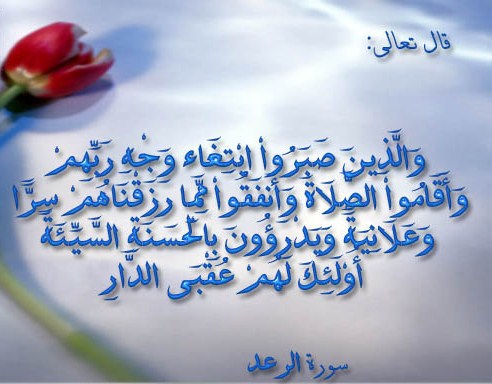 قال تعالى:
وَالَّذِينَ صَبَرُواْ ابْتِغَاء وَجْهِ رَبِّهِمْ
وَأَقَامُواْ الصَّلاَةَ وَأَنفَقُواْ مِمَّا رَزَقْنَاهُمْ سِرًّا
وَعَلاَنِيَةً وَيَدْرَؤُونَ بِالْحَسَنَةِ السَّيِّئَةَ
أُوْلَئِكَ لَهُمْ عُقْبَى الدَّارِ
سورة الرعد